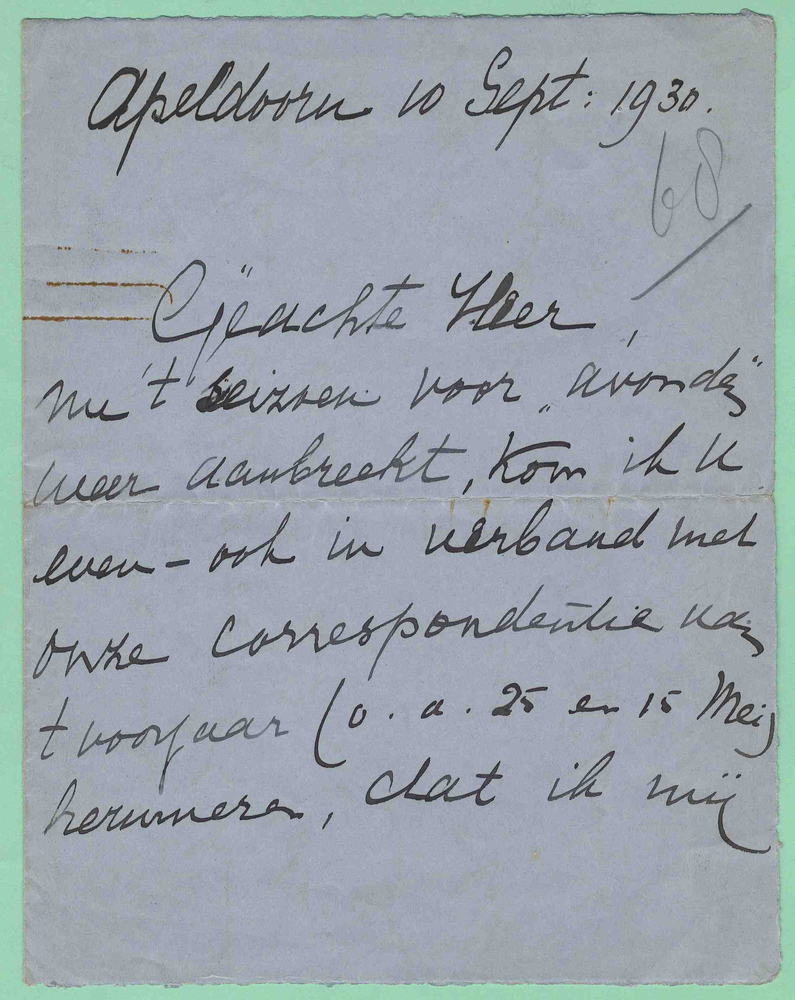 Apeldoorn 10 Sept: 1930.
68
Geachte Heer,
nu 't seizoen voor „avonden"
weer aanbreekt, kom ik U
even - ook in verband met
onze correspondentie van
't voorjaar (o.a. 25 en 15 Mei)
herinneren, dat ik mij